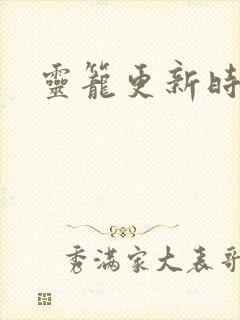 靈籠更新時
秀滿家大表哥